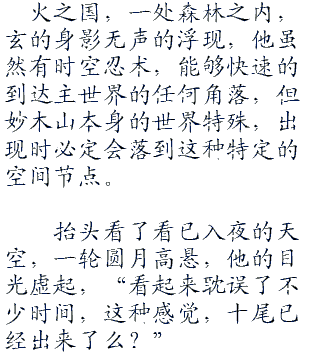 火之国，一处森林之内，
玄的身影无声的浮现，他虽
然有时空忍术，能够快速的
到达主世界的任何角落，但
妙木山本身的世界特殊，出
现时必定会落到这种特定的
空间节点。
抬头看了看已入夜的天
空，一轮圆月高悬，他的目
光虚起，“看起来耽误了不
少时间，这种感觉，十尾已
经出来了么？”